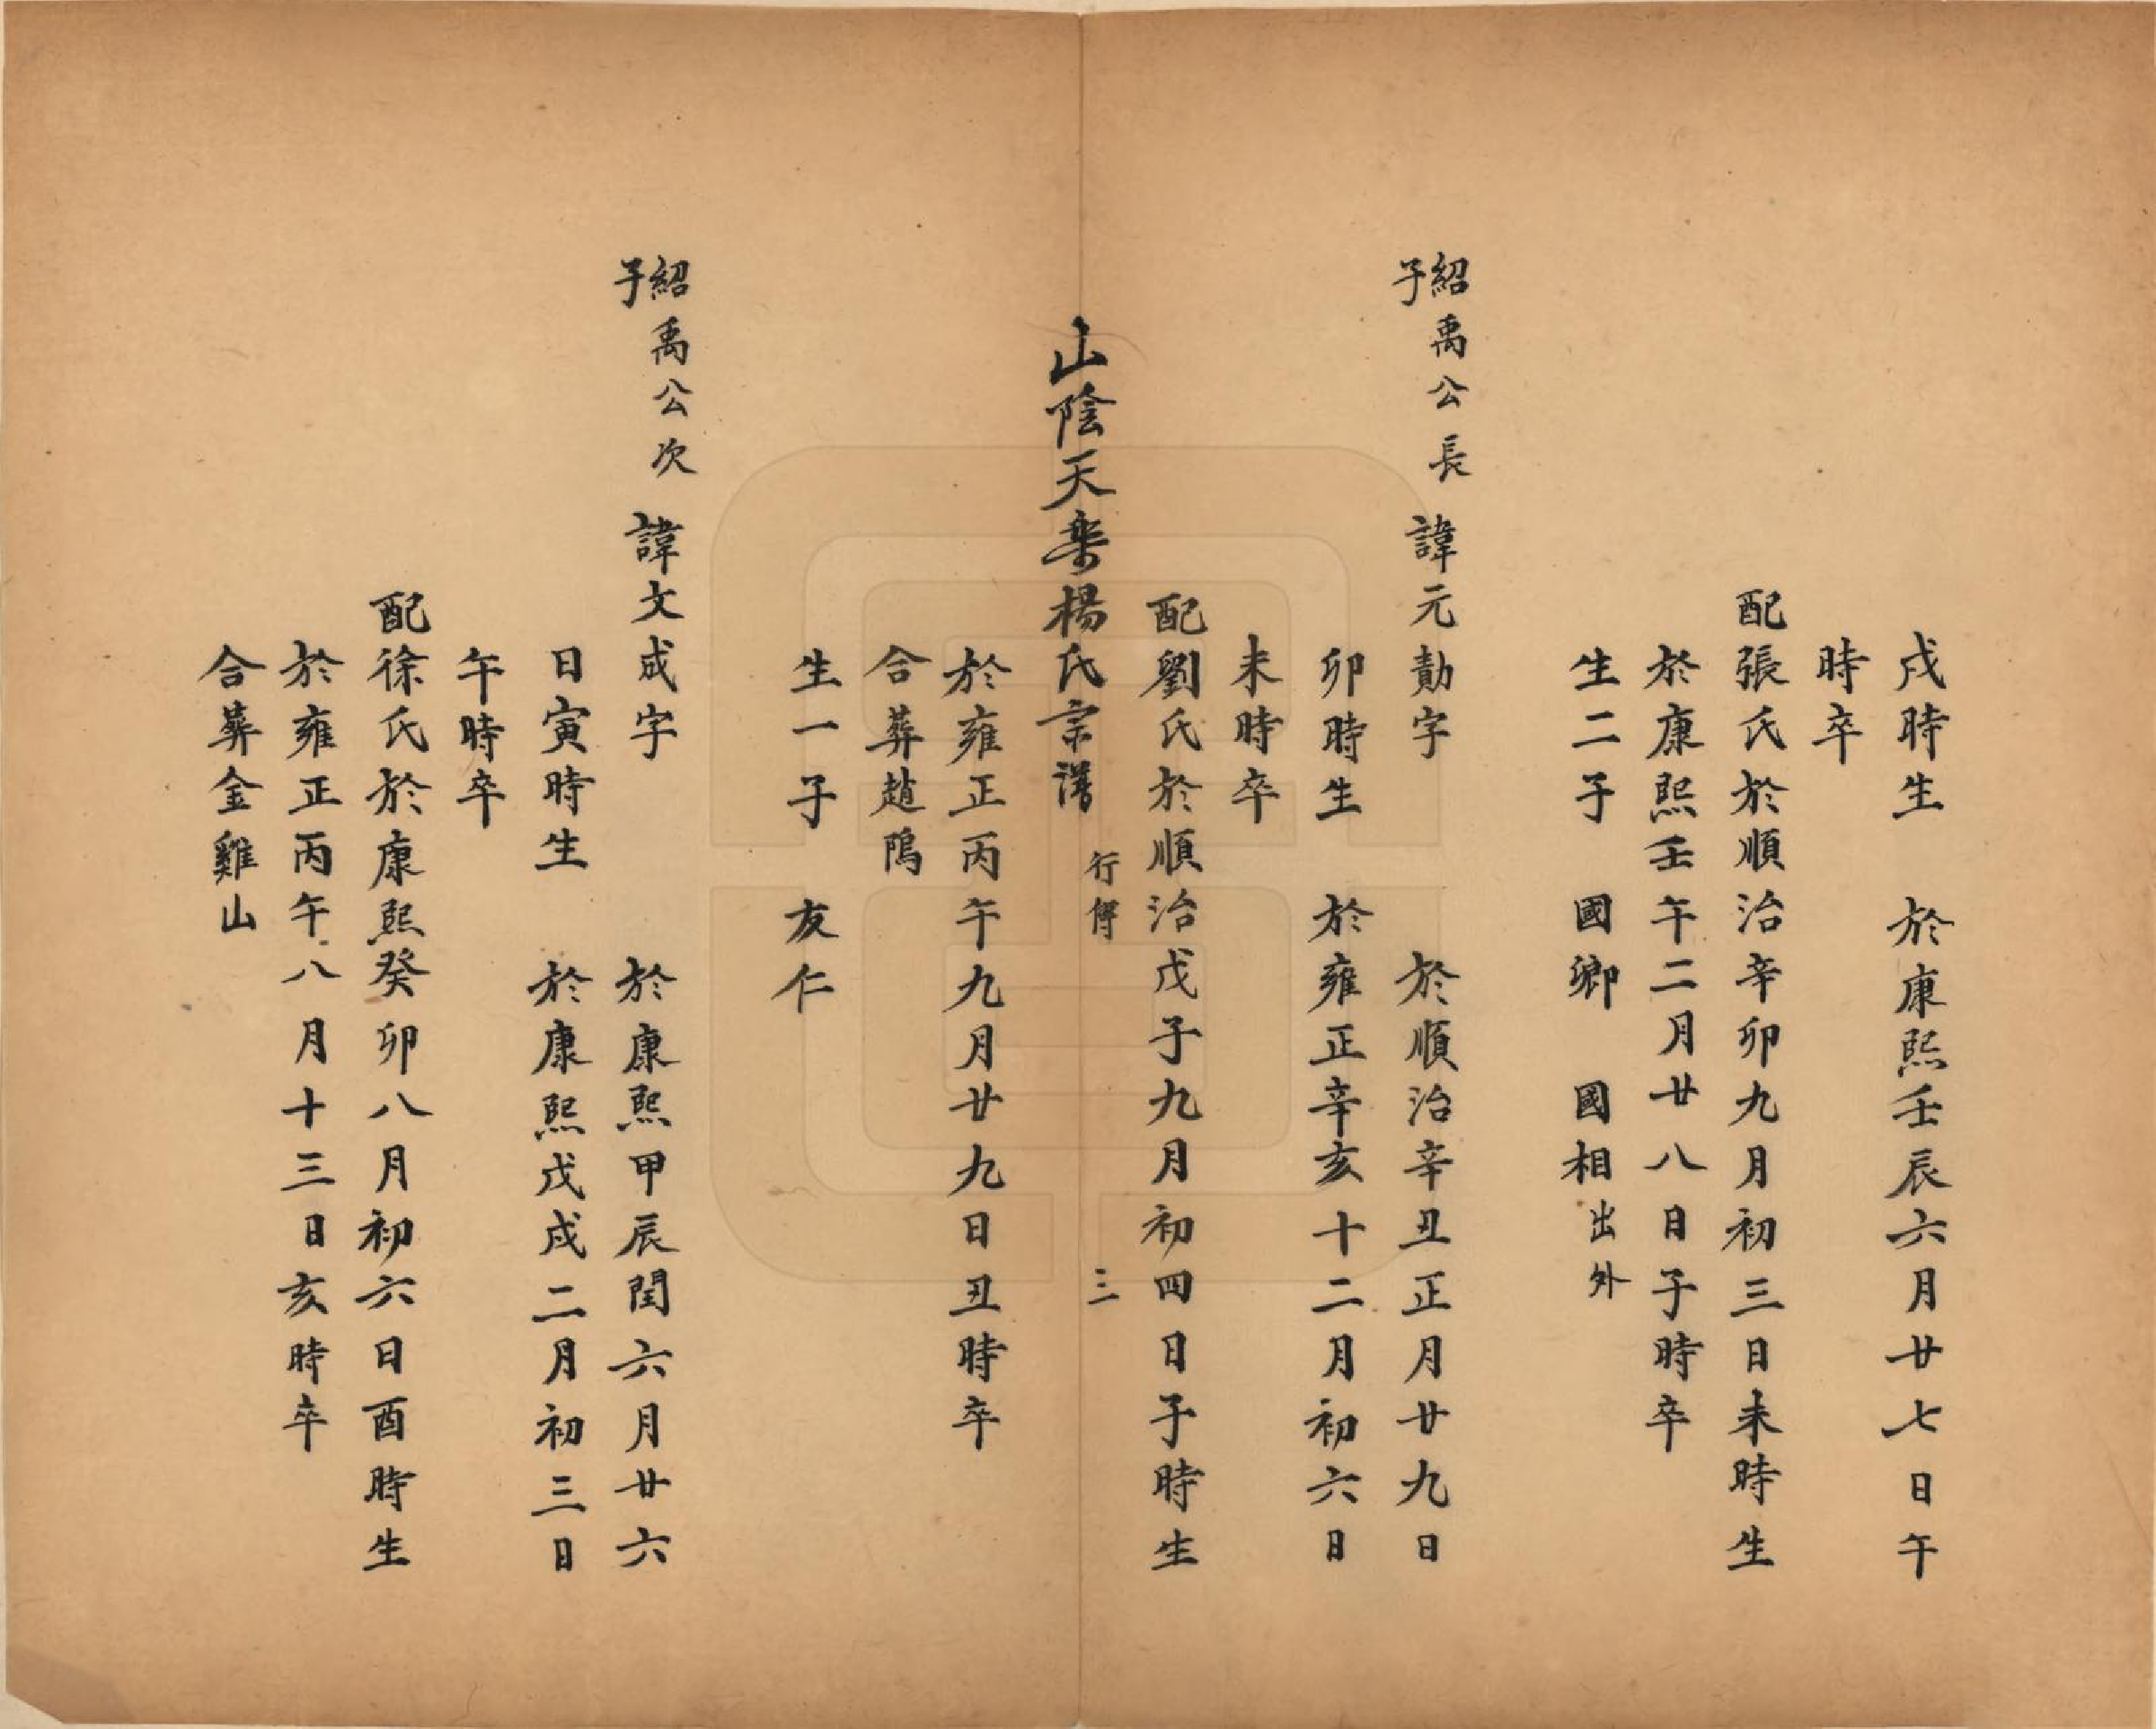 戌時生　於康熙壬辰六月廿七日午
時卒
配張氏於順治辛卯九月初三日未時生
於康熙壬午二月廿八日子時卒
生二子　國卿　國相出外
紹禹公長子　諱元勛字　於順治辛丑正月廿九日
卯時生　於雍正辛亥十二月初六日
未時卒
配劉氏於順治戊子九月初四日子時生
山陰天樂楊氏宗譜　行傳　三
於雍正丙午九月廿九日丑時卒
合葬趙隖
生一子　友仁
紹禹公次子　諱文成字　於康熙甲辰閏六月廿六
日寅時生　於康熙戊戌二月初三日
午時卒
配徐氏於康熙癸卯八月初六日酉時生
於雍正丙午八月十三日亥時卒
合葬金雞山